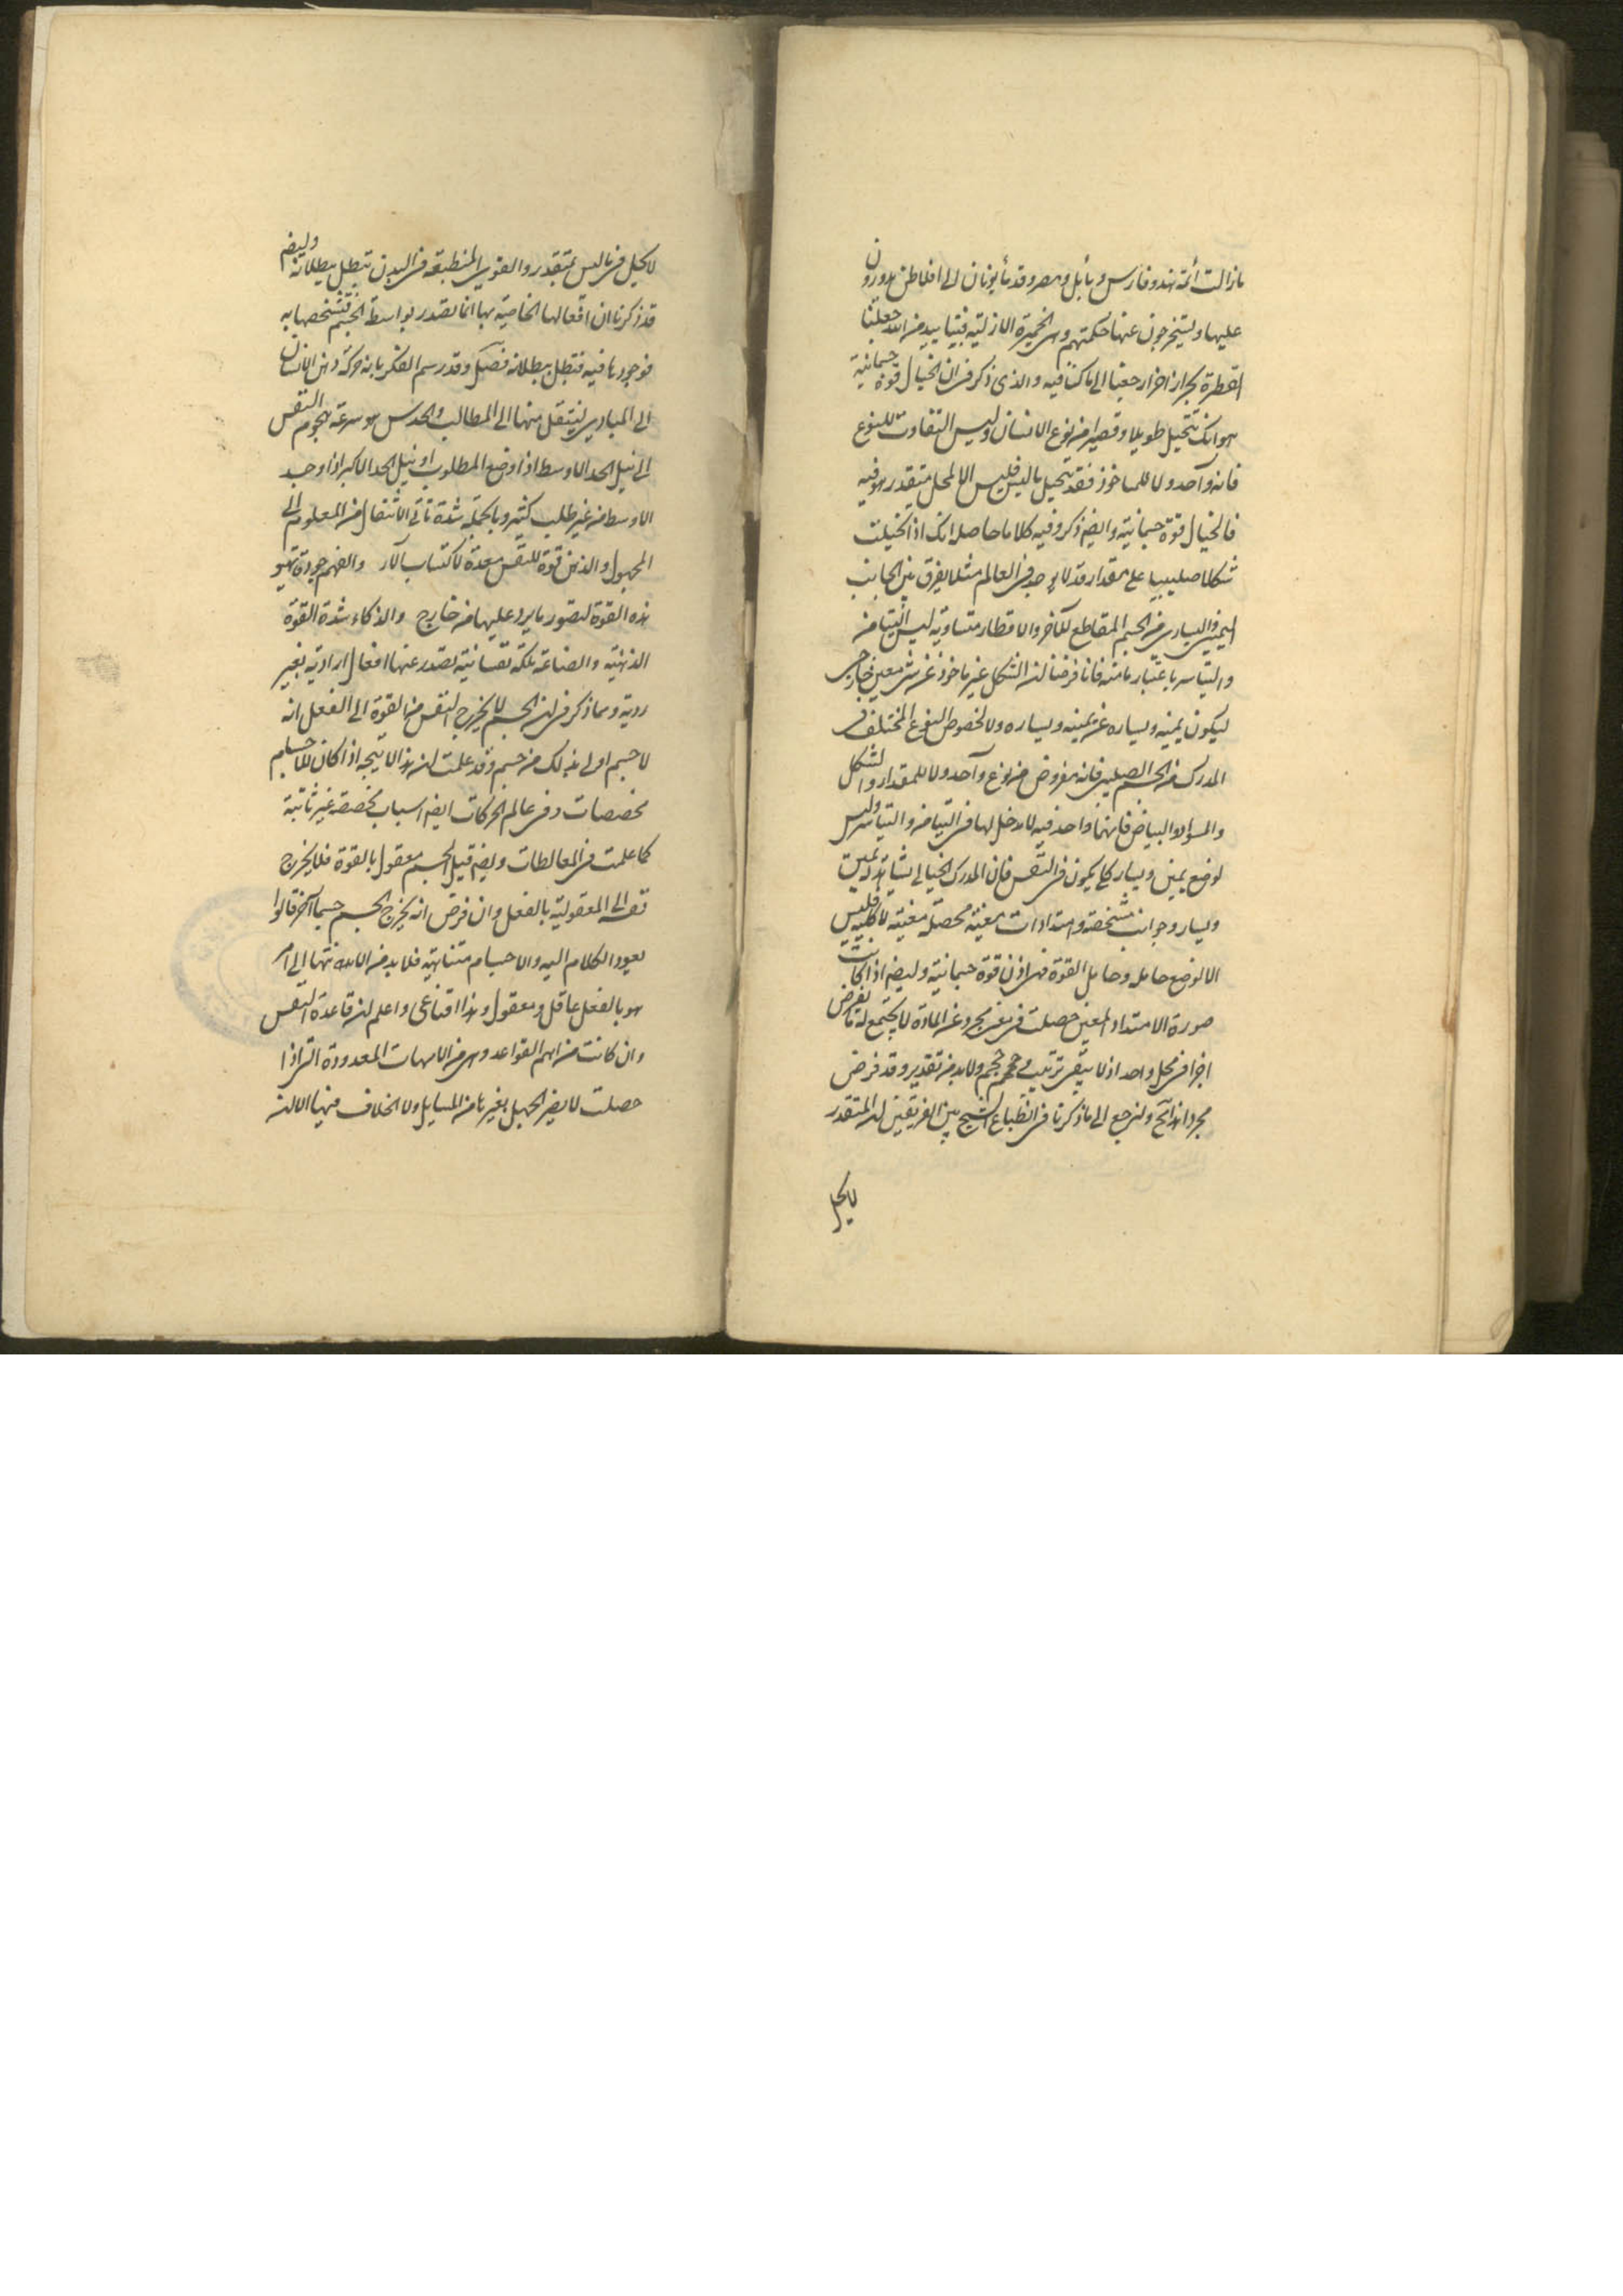 مازالت أئمة هند وفارس وبابل ومصر وقدماء يونان الى افلاطن يدورون
عليها ويستخرجون عنها حكمتهم وهى الخميرة الازلية فبتاييد من الله جعلنا
القطرة بحارا اخرا رجعنا الى ما كنا فيه والذى ذكر فى ان الخيال قوة جسمانية
هو انك تتخيل طويلا وقصيرا من نوع الانسان وليس التفاوت للنوع
فانه واحد ولا للماخوذ فقد تتخيل ما ليس فليس الا لمحل متقدر هو فيه
فالخيال قوة جسمانية وايضا ذكر وفيه كلاما حاصله انك اذا تخيلت
شكلا صليبيا على مقدار قد لا يوجد فى العالم مثله يفرق بين الجانب
اليمينى واليسارى من الجسم المقاطع للآخر والاقطار متساوية ليس التيامن
والتياسر باعتبار مامنه فانا فرضنا ان الشكل غير ماخوذ عن شئ معين خارجى
ليكون يمينه ويساره عن يمينه ويساره ولا لخصوص النوع المختلف فى
المدرك من الجسم الصليبى فانه مفروض من نوع واحد ولا للمقدار والشكل
والسواد والبياض فانهما واحد فيه لا مدخل لها فى التيامن والتياسر وليس
لوضع يمين ويسار كلى يكون فى النفس فان المدرك الخيالى نشاهد يمين
ويسار وجوانب مشخصة وامتدادات معينة محصلة معينة لا كلية فليس
الا لوضع حامله وحامل القوة فهى اذن قوة جسمانية وايضا اذا كانت
صورة الامتداد المعين حصلت فى نفس مجرد عن المادة لا يجتمع له ما يفرض
اجزا فى محل واحد اذ لا يبقى ترتيب وحجم حجم ولا بد من تقدير وقد فرض
مجردا هذا خ ولنرجع الى ما ذكرنا فى انطباع الشبح بين الفريقين ان المتقدر
لا يحل
لا يحل فى ما ليس بمتقدر والقوى المنطبقه فى البدن تبطل ببطلانه وايضا
قد ذكرنا ان افعالها الخاصية بها انما تصدر بواسطة الجسم فتشخصها به
فوجودها فيه فتبطل ببطلانه فصل وقد رسم الفكر بانه حركة ذهن الانسان
الى المبادى لينتقل منها الى المطالب والحدس هو سرعة هجوم النفس
الى نيل الحد الاوسط اذا وضع المطلوب او نيل الحد الاكبر اذا وجد
الاوسط من غير طلب كثير وبالجملة شدة تأتى الانتقال من المعلوم الى
المجهول والذهن قوة للنفس معدة لاكتساب الآراء والفهم جودة تهيؤ
هذه القوة لتصور ما يرد عليها من خارج والذكاء شدة القوة
الذهنية والصناعة ملكة نفسانية تصدر عنها افعال ارادية بغير
روية ومما ذكر فى ان الجسم لا يخرج النفس من القوة الى الفعل انه
لا جسم اولى بذلك من جسم وقد علمت ان هذا لا يتجه اذا كان للاجسام
مخصصات وفى عالم الحركات ايضا اسباب مخصصة غير ثابتة
كما علمت فى المغالطات وايضا قيل الجسم معقول بالقوة فلا يخرج
نفسه الى المعقولية بالفعل وان فرض انه يخرج الجسم جسما آخر قالوا
يعود الكلام اليه والاجسام متناهية فلا بد من الانتها الى امر
هو بالفعل عاقل ومعقول وهذا اقناعى واعلم ان قاعدة النفس
وان كانت من اهم القواعد وهى من الامهات المعدودة التى اذا
حصلت لا يضر الجهل بغيرها من المسايل ولا الخلاف فيها الا ان